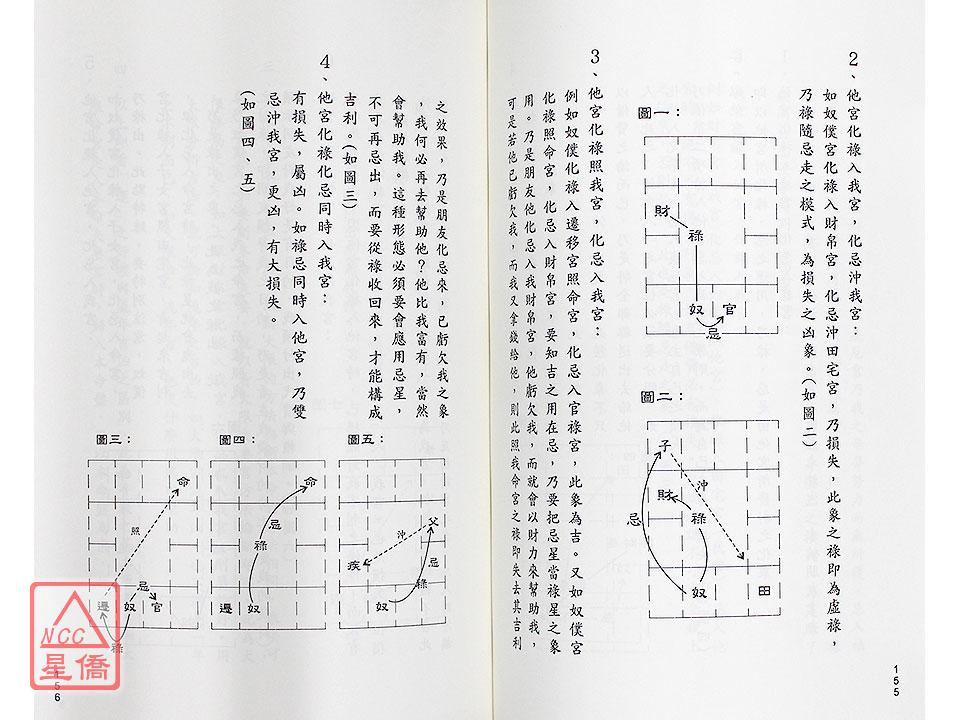 2、他宮化祿入我宮，化忌沖我宮：
如奴僕宮化祿入財帛宮，化忌沖田宅宮，乃損失，此象之祿即為虛祿，
乃祿隨忌走之模式，為損失之凶象。(如圖二)
圖一：
財
祿
奴
官
忌
圖二：
子
沖
財
祿
忌
奴
田
3、他宮化祿照我宮，化忌入我宮：
例如奴僕化祿入遷移宮照命宮，化忌入官祿宮，此象為吉。又如奴僕宮
化祿照命宮，化忌入財帛宮，要知吉之用在忌，乃要把忌星當祿星之象
用。乃是朋友他化忌入我財帛宮，他虧欠我，而就會以財力來幫助我，
可是若他已虧欠我，而我又拿錢給他，則此照我命宮之祿即失去其吉利
155
之效果，乃是朋友化忌來，已虧欠我之象
，我何必再去幫助他？他比我富有，當然
會幫助我。這種形態必須要會應用忌星，
不可再忌出，而要從祿收回來，才能構成
吉利。(如圖三)
4、他宮化祿化忌同時入我宮：
有損失，屬凶。如祿忌同時入他宮，乃雙
忌沖我宮，更凶，有大損失。
(如圖四、五)
圖五：
父
沖
疾
忌
祿
奴
圖四：
命
忌
祿
遷
奴
圖三：
命
照
忌
遷
奴
官
祿
NCC
星僑
156